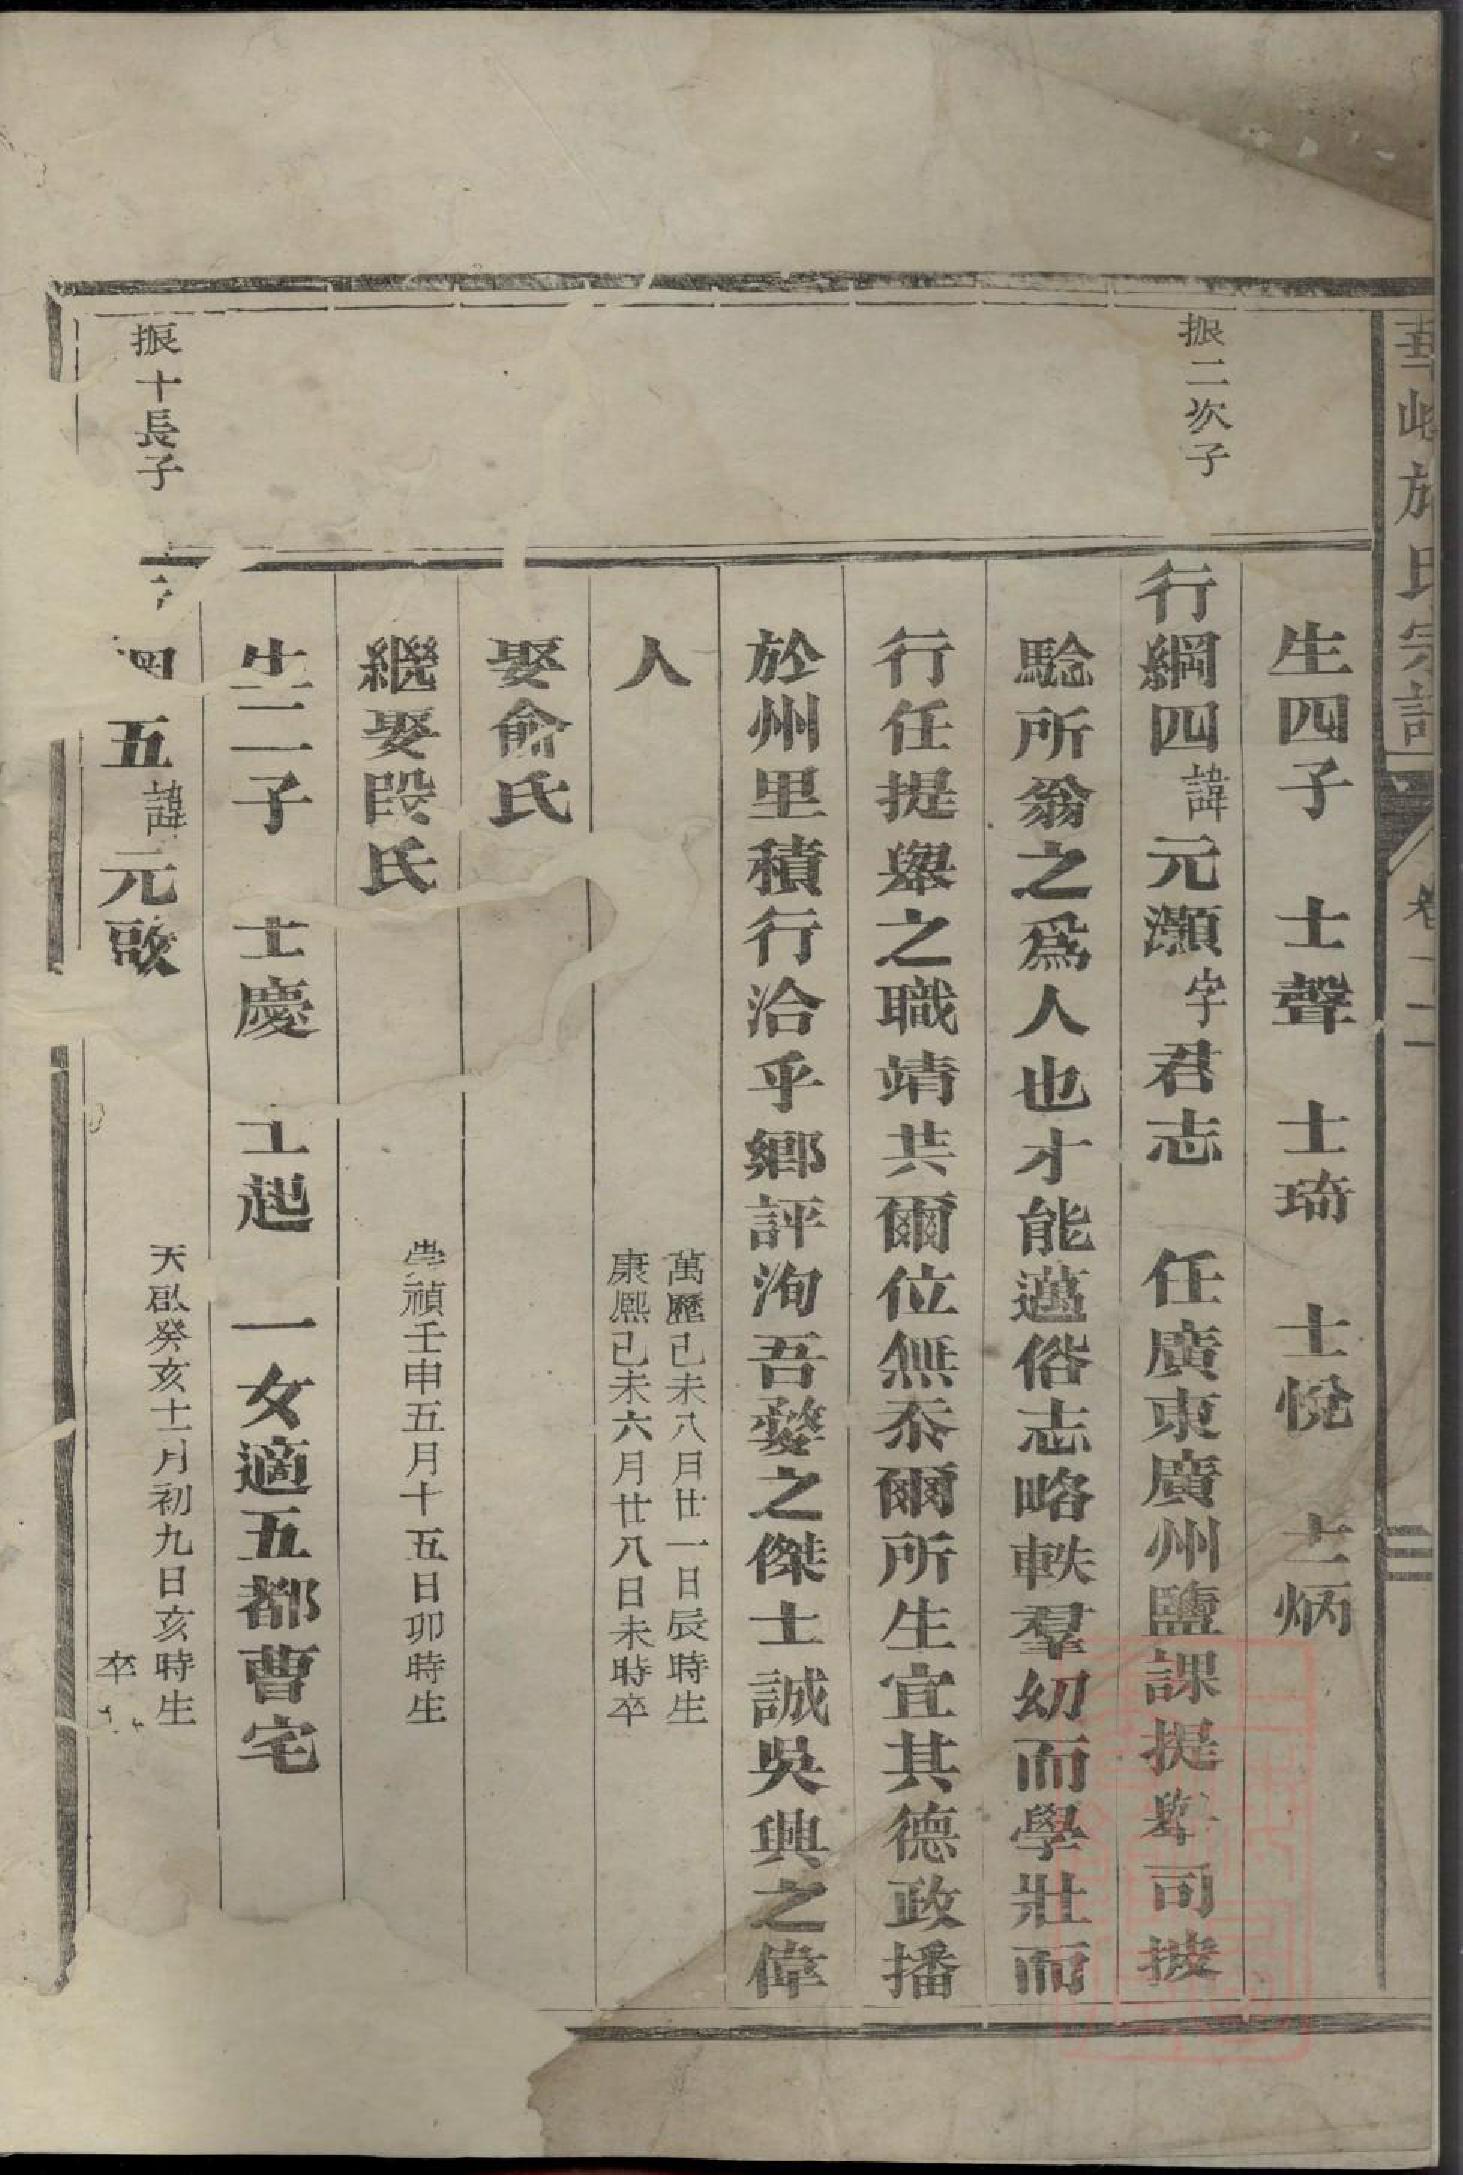 氏宗譜 卷
生四子 士聲 士琦 士悅 士炳
振二次子
行綱四諱元灝字君志 任廣東廣州鹽課提舉司披
驗所翁之爲人也才能邁俗志略軼羣幼而學壯而
行任提舉之職靖共爾位無忝爾所生宜其德政播
於州里積行洽乎鄉評洵吾婺之傑士誠吳興之偉
人
萬歷己未八月廿一日辰時生
康熙己未六月廿八日未時卒
娶俞氏
繼娶段氏
崇禎壬申五月十五日卯時生
生二子 士慶 士起 一女適五都曹宅
振十長子
四五諱元啟
天啟癸亥十二月初九日亥時生
卒